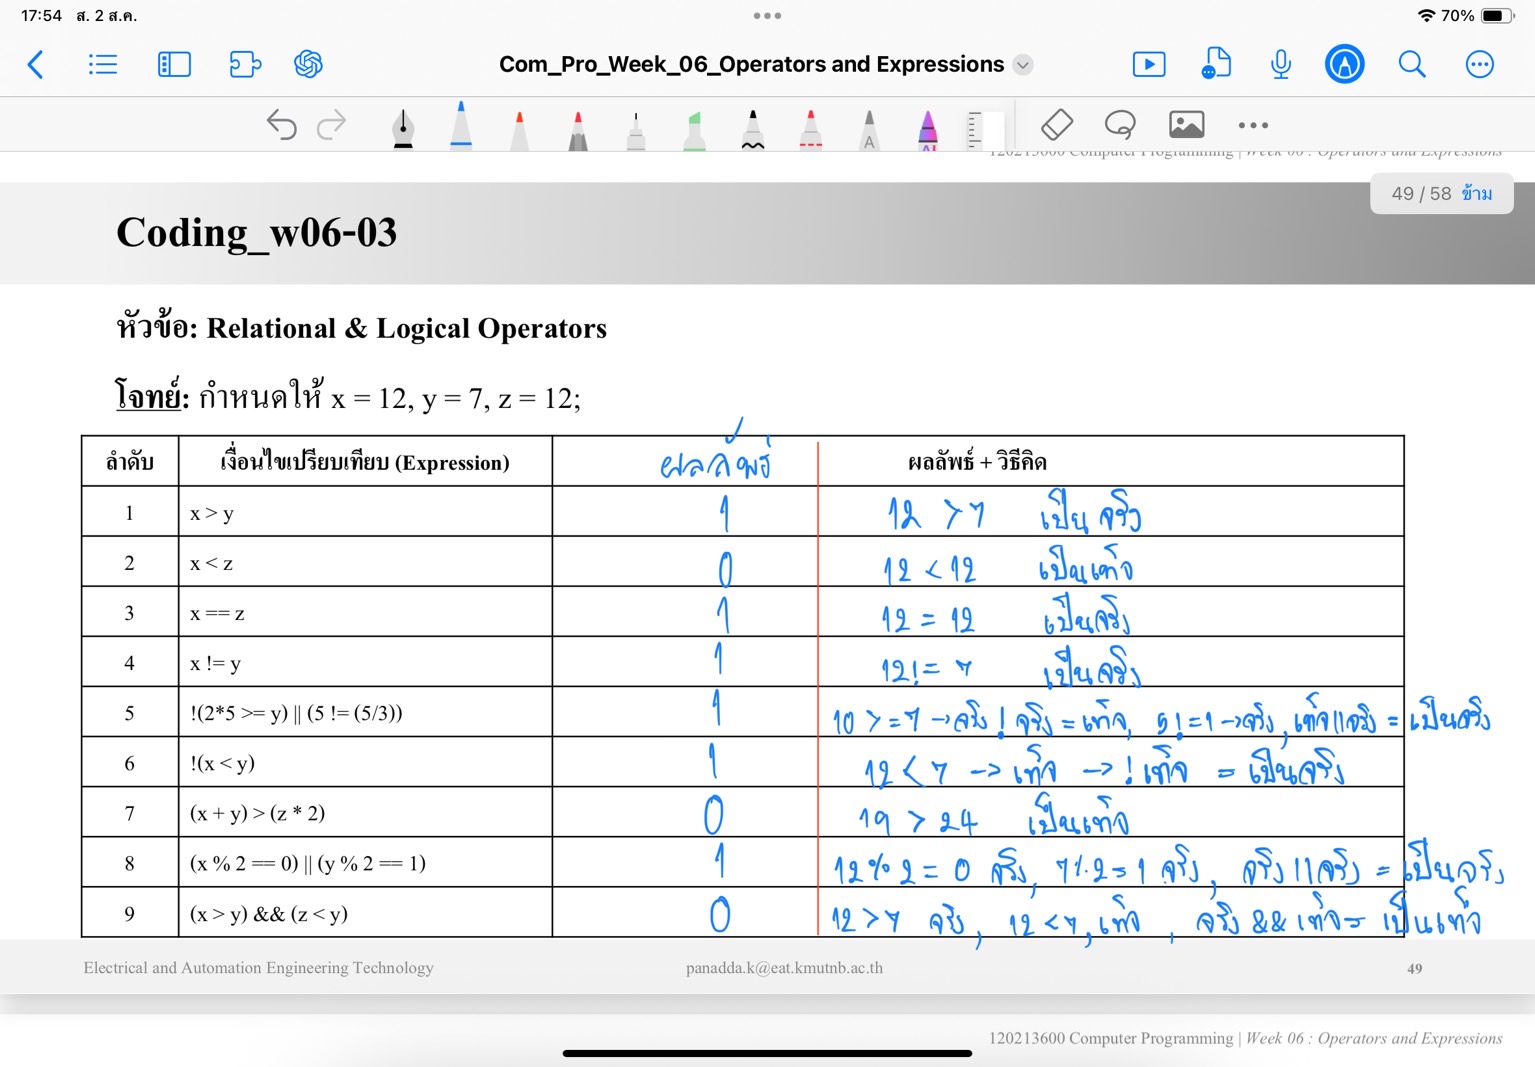 17:54 ส. 2 ส.ค.
70%
Com_Pro_Week_06_Operators and Expressions
120213600 Computer Programming | Week 06 : Operators and Expressions
49 / 58 ข้าม
Coding_w06-03
หัวข้อ: Relational & Logical Operators
โจทย์: กำหนดให้ x = 12, y = 7, z = 12;
ลำดับ เงื่อนไขเปรียบเทียบ (Expression) ผลลัพธ์ ผลลัพธ์ + วิธีคิด
1 x > y 1 12 > 7 เป็นจริง
2 x < z 0 12 < 12 เป็นเท็จ
3 x == z 1 12 = 12 เป็นจริง
4 x != y 1 12 != 7 เป็นจริง
5 !(2*5 >= y) || (5 != (5/3)) 1 10 >= 7 → จริง ! จริง = เท็จ, 5 != 1 → จริง, เท็จ || จริง = เป็นจริง
6 !(x < y) 1 12 < 7 -> เท็จ -> ! เท็จ = เป็นจริง
7 (x + y) > (z * 2) 0 19 > 24 เป็นเท็จ
8 (x % 2 == 0) || (y % 2 == 1) 1 12 % 2 = 0 จริง, 7 % 2 = 1 จริง, จริง || จริง = เป็นจริง
9 (x > y) && (z < y) 0 12 > 7 จริง, 12 < 7, เท็จ, จริง && เท็จ = เป็นเท็จ
Electrical and Automation Engineering Technology panadda.k@eat.kmutnb.ac.th 49
120213600 Computer Programming | Week 06 : Operators and Expressions